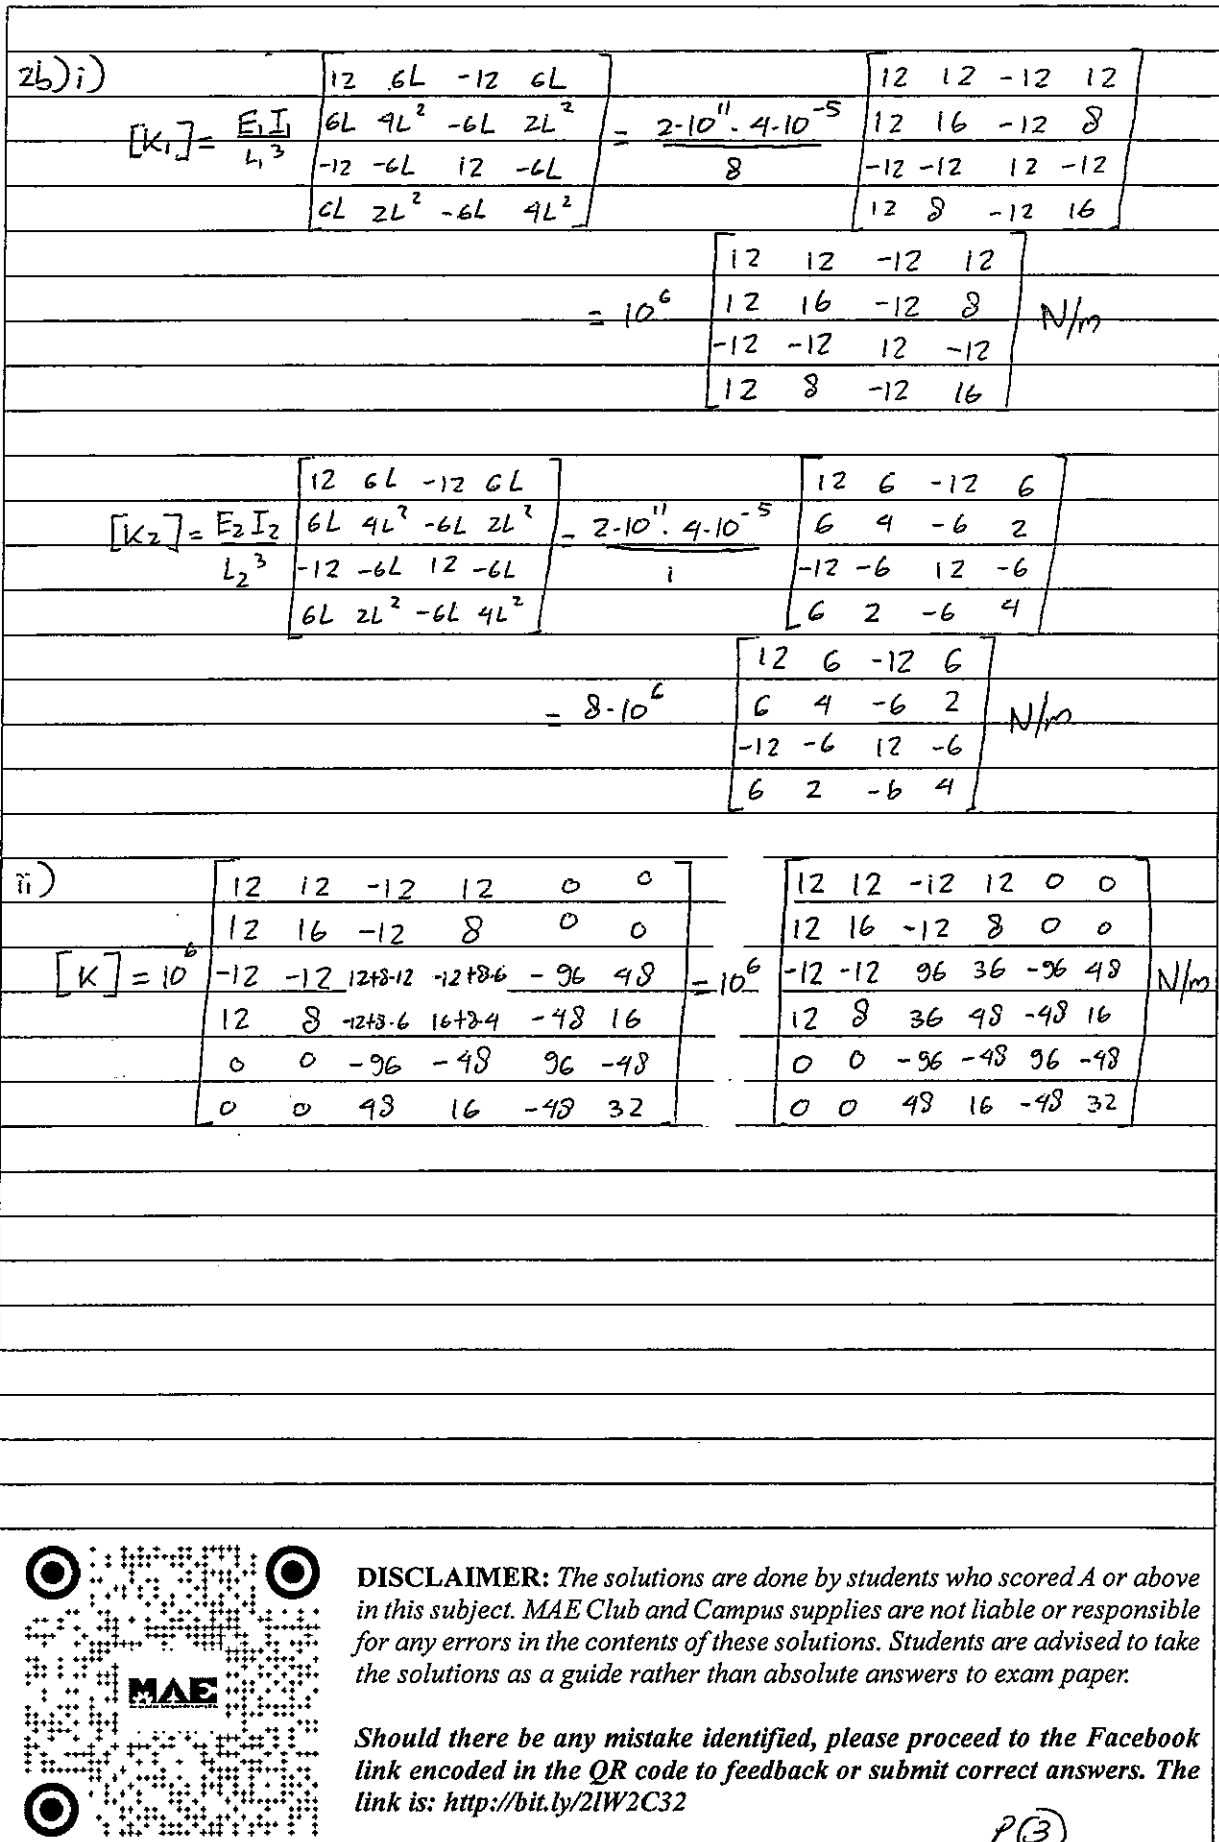 2b)i)
[K₁] = E₁I₁/L₁³ [12 6L -12 6L; 6L 4L² -6L 2L²; -12 -6L 12 -6L; 6L 2L² -6L 4L²] = 2·10¹¹·4·10⁻⁵/8 [12 12 -12 12; 12 16 -12 8; -12 -12 12 -12; 12 8 -12 16]
= 10⁶ [12 12 -12 12; 12 16 -12 8; -12 -12 12 -12; 12 8 -12 16] N/m
[K₂] = E₂I₂/L₂³ [12 6L -12 6L; 6L 4L² -6L 2L²; -12 -6L 12 -6L; 6L 2L² -6L 4L²] = 2·10¹¹·4·10⁻⁵/1 [12 6 -12 6; 6 4 -6 2; -12 -6 12 -6; 6 2 -6 4]
= 8·10⁶ [12 6 -12 6; 6 4 -6 2; -12 -6 12 -6; 6 2 -6 4] N/m
ii)
[K] = 10⁶ [12 12 -12 12 0 0; 12 16 -12 8 0 0; -12 -12 12+8·12 -12+8·6 -96 48; 12 8 -12+8·6 16+8·4 -48 16; 0 0 -96 -48 96 -48; 0 0 48 16 -48 32] = 10⁶ [12 12 -12 12 0 0; 12 16 -12 8 0 0; -12 -12 96 36 -96 48; 12 8 36 48 -48 16; 0 0 -96 -48 96 -48; 0 0 48 16 -48 32] N/m
MAE
DISCLAIMER: The solutions are done by students who scored A or above
in this subject. MAE Club and Campus supplies are not liable or responsible
for any errors in the contents of these solutions. Students are advised to take
the solutions as a guide rather than absolute answers to exam paper.
Should there be any mistake identified, please proceed to the Facebook
link encoded in the QR code to feedback or submit correct answers. The
link is: http://bit.ly/2lW2C32
P(3)